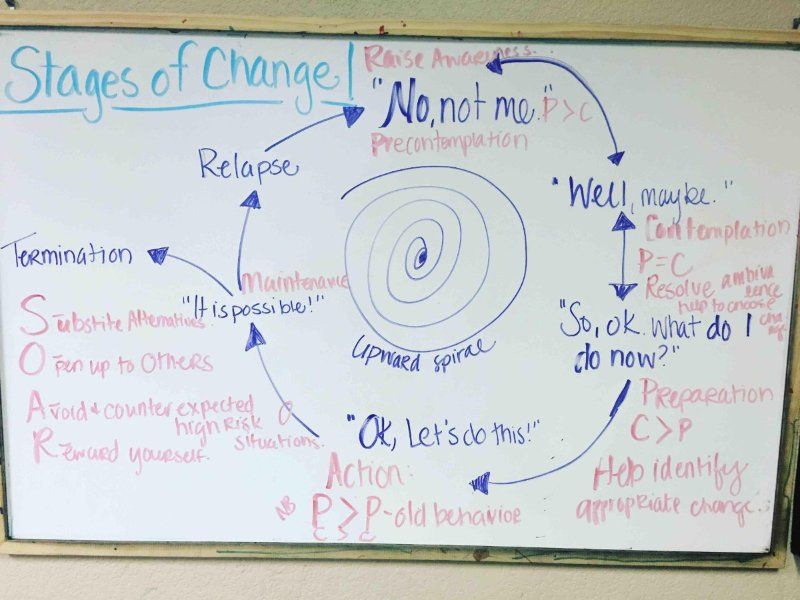 Stages of Change!
Raise Awareness...
"No, not me." P > C
Precontemplation
Relapse
"Well, maybe."
Contemplation
P = C
Resolve ambivalence
help to choose
change.
"So, ok. What do I
do now?"
Preparation
C > P
Help identify
appropriate change.
"Ok, Let's do this!"
Action:
NB
P > P - old behavior
Maintenance
"It is possible!"
Termination
Upward spiral
Substite Alternatives
Open up to Others
Avoid & counter expected
high Risk
situations.
Reward yourself.